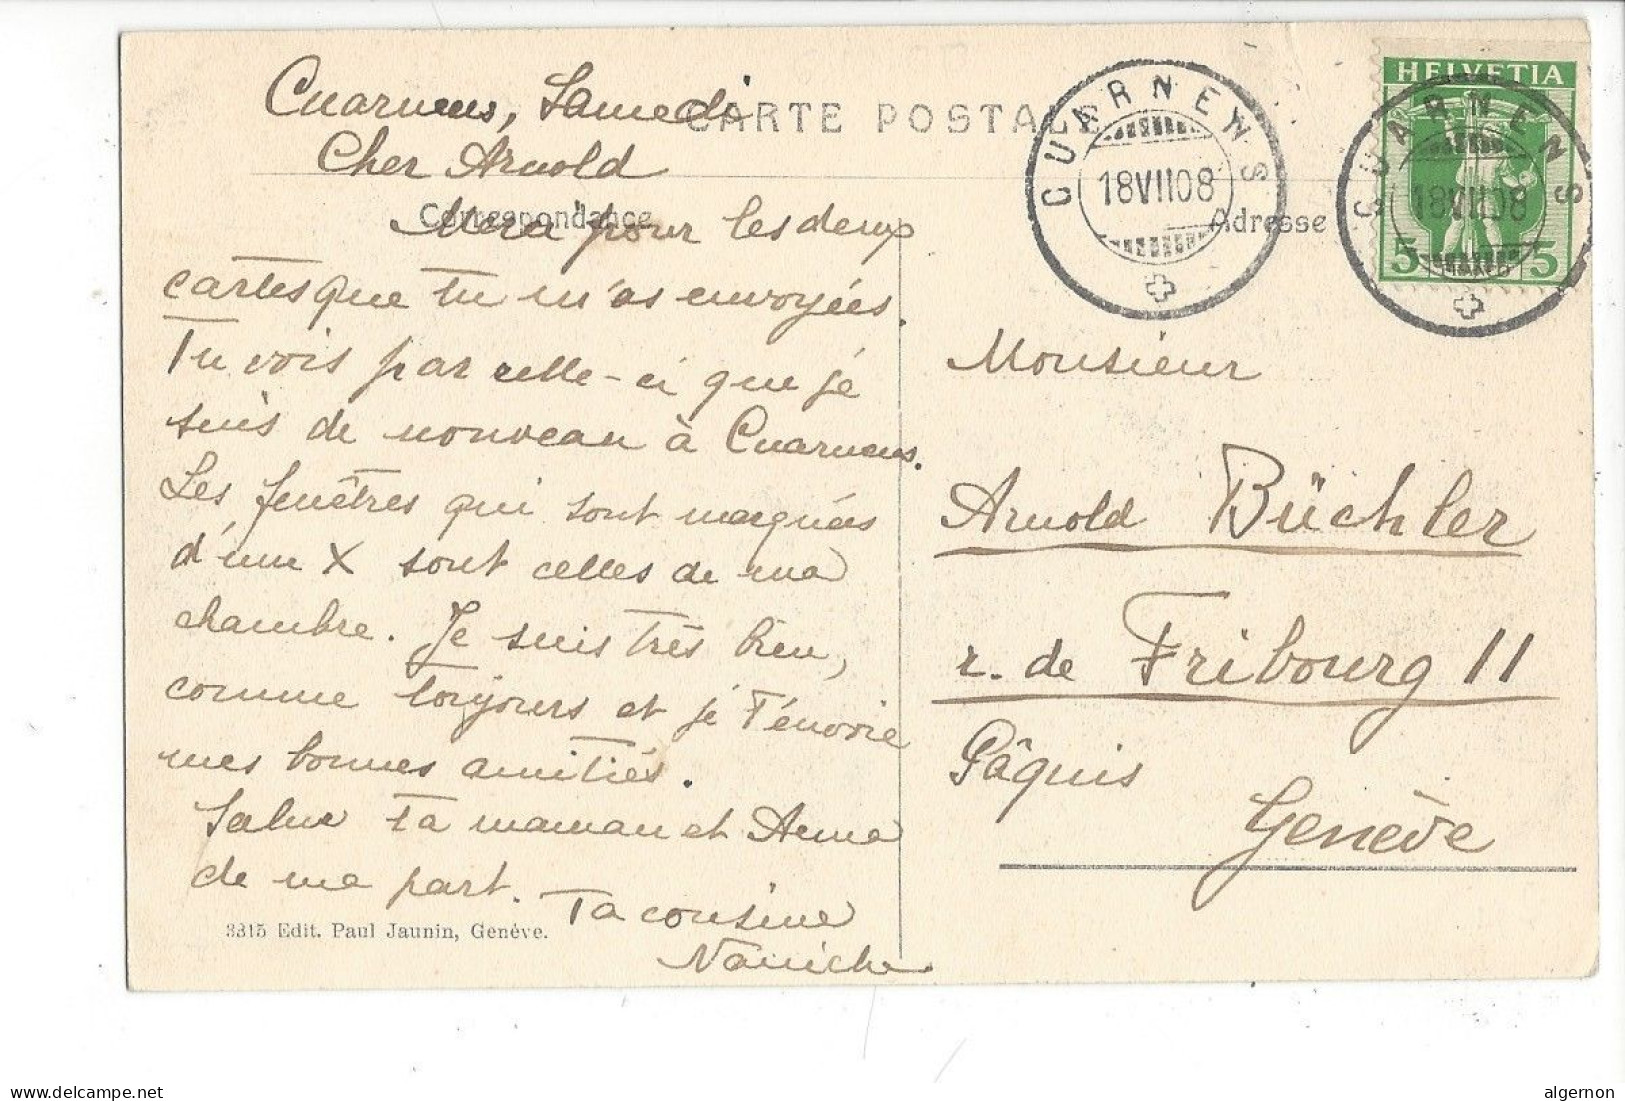 Cuarnens, Samedi
CARTE POSTALE
Cher Arnold
Correspondance
Merci pour les deux
cartes que tu m'as envoyées.
Tu vois par celle-ci que je
suis de nouveau à Cuarnens.
Les fenêtres qui sont marquées
d'une X sont celles de ma
chambre. Je suis très bien,
comme toujours et je t'envoie
mes bonnes amitiés.
Salue ta maman et Anna
de ma part. Ta cousine
3315 Edit. Paul Jaunin, Genève.
CUARNENS
18 VII 08
Adresse
HELVETIA
5 5
CUARNENS
18 VII 08
Monsieur
Arnold Büchler
r. de Fribourg 11
Pâquis
Genève
www.delcampe.net
algernon